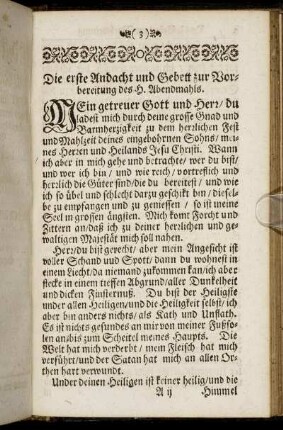 ( 3 )
Die erste Andacht und Gebett zur Vor-
bereitung des H. Abendmahls.
MEin getreuer Gott und Herr/ du
ladest mich durch deine grosse Gnad und
Barmhertzigkeit zu dem herrlichen Fest
und Mahlzeit deines eingebohrnen Sohns/ mei-
nes Herren und Heilands Jesu Christi. Wann
ich aber in mich gehe und betrachte/ wer du bist/
und wer ich bin/ und wie reich/ vortreflich und
herrlich die Güter sind/ die du bereitest/ und wie
ich so übel und schlecht darzu geschikt bin/ diesel-
be zu empfangen und zu geniessen/ so ist meine
Seel in grossen ängsten. Mich komt Forcht und
Zittern an/ daß ich zu deiner herrlichen und ge-
waltigen Majestät mich soll nahen.
Herr/ du bist gerecht/ aber mein Angesicht ist
voller Schand und Spott/ dann du wohnest in
einem Liecht/ da niemand zukommen kan/ ich aber
stecke in einem tieffen Abgrund/ aller Dunkelheit
und dicken Finsternuß. Du bist der Heiligste
under allen Heiligen/ und die Heiligkeit selbst/ ich
aber bin anders nichts/ als Kath und Unflath.
Es ist nichts gesundes an mir von meiner Fußsolen
an/ bis zum Scheitel meines Haupts. Die
Welt hat mich verderbt/ mein Fleisch hat mich
verführt/ und der Satan hat mich an allen Or-
then hart verwundt.
Under deinen Heiligen ist keiner heilig/ und die
A ij Himmel